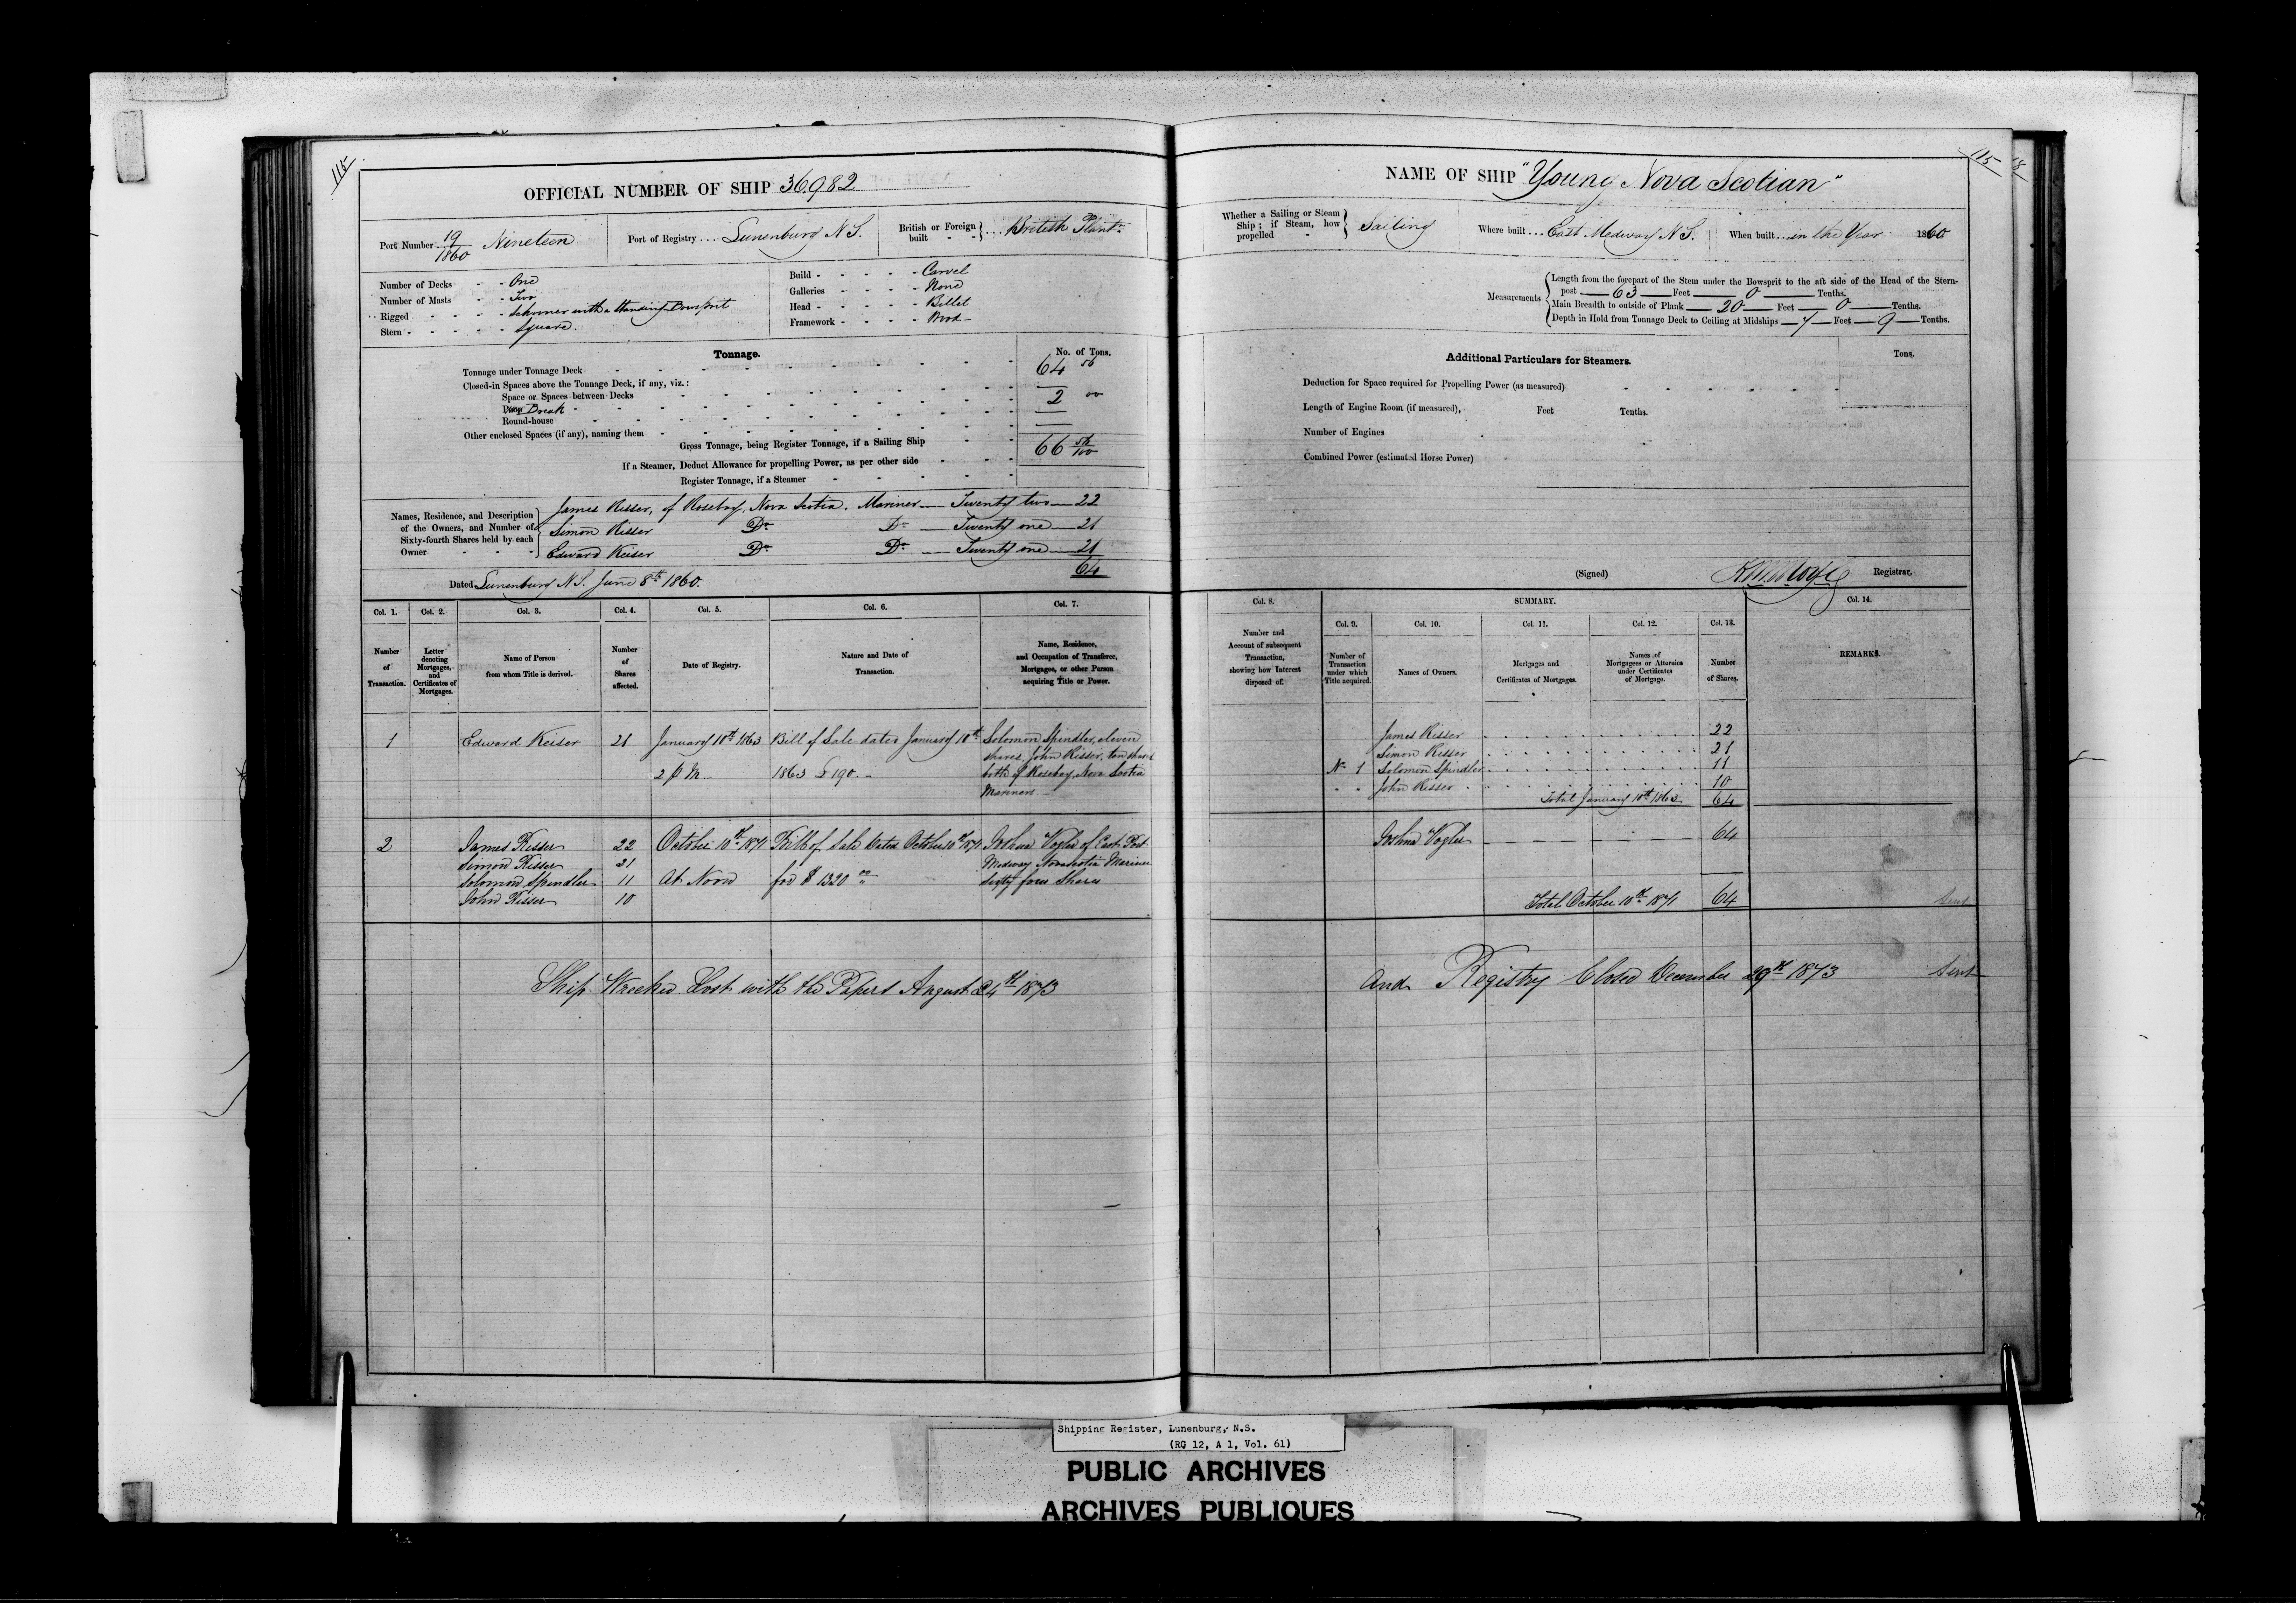 115
OFFICIAL NUMBER OF SHIP 36,982
Port Number 19/1860 Nineteen
Port of Registry .... Lunenburg N S.
British or Foreign built - - } .... British Plantn
Number of Decks - - One
Number of Masts - - Two
Rigged - - - - Schooner with a Standing Bowsprit
Stern - - - - - Square.
Build - - - - - Carvel
Galleries - - - - None
Head - - - - - Billet
Framework - - - - Wood
Tonnage.
No. of Tons.
Tonnage under Tonnage Deck 64 56
Closed-in Spaces above the Tonnage Deck, if any, viz.:
Space or Spaces between Decks
Poop Break - 2 00
Round-house
Other enclosed Spaces (if any), naming them
Gross Tonnage, being Register Tonnage, if a Sailing Ship 66 56/100
If a Steamer, Deduct Allowance for propelling Power, as per other side
Register Tonnage, if a Steamer
Names, Residence, and Description of the Owners, and Number of Sixty-fourth Shares held by each Owner
James Risser, of Rosebay, Nova Scotia, Mariner — Twenty two — 22
Simon Risser Do Do — Twenty one — 21
Edward Keiser Do Do — Twenty one — 21
64
Dated Lunenburg N S. June 8th 1860.
Col. 1. Col. 2. Col. 3. Col. 4. Col. 5. Col. 6. Col. 7.
Number of Transaction.
Letter denoting Mortgages, and Certificates of Mortgages.
Name of Person from whom Title is derived.
Number of Shares affected.
Date of Registry.
Nature and Date of Transaction.
Name, Residence, and Occupation of Transferee, Mortgagee, or other Person acquiring Title or Power.
1 Edward Keiser 21 January 10th 1863 Bill of Sale dated January 10th Solomon Spindler, eleven
2 p M. 1863 £190. - shares, John Risser, ten shares
both of Rosebay, Nova Scotia
Mariners
2 James Risser 22 October 10th 1871 Bill of Sale dated October 10th 1871 Joshua Vogler of East Port
Simon Risser 21 Medway Nova Scotia Mariner
Solomon Spindler 11 At Noon for $1320 00 Sixty four Shares
John Risser 10
Ship Wrecked Lost with the Papers August 24th 1873
115
NAME OF SHIP "Young Nova Scotian"
Whether a Sailing or Steam Ship; if Steam, how propelled - } Sailing
Where built ... East Medway N S.
When built ... in the Year 1860
Measurements
Length from the forepart of the Stem under the Bowsprit to the aft side of the Head of the Stern-
post — 63 — Feet — 0 — Tenths.
Main Breadth to outside of Plank — 20 — Feet — 0 — Tenths.
Depth in Hold from Tonnage Deck to Ceiling at Midships — 7 — Feet — 9 — Tenths.
Additional Particulars for Steamers.
Tons.
Deduction for Space required for Propelling Power (as measured)
Length of Engine Room (if measured), Feet Tenths.
Number of Engines
Combined Power (estimated Horse Power)
(Signed) Registrar.
Col. 8. SUMMARY. Col. 14.
Col. 9. Col. 10. Col. 11. Col. 12. Col. 13.
Number and Account of subsequent Transaction, showing how Interest disposed of.
Number of Transaction under which Title acquired.
Names of Owners.
Mortgages and Certificates of Mortgages.
Names of Mortgagees or Attornies under Certificates of Mortgage.
Number of Shares.
REMARKS.
James Risser 22
Simon Risser 21
No 1 Solomon Spindler 11
" " John Risser 10
Total January 10th 1863. 64
Joshua Vogler 64
Total October 10th 1871 64
Sent
and Registry Closed December 29th 1873 Sent
Shipping Register, Lunenburg, N.S.
(RG 12, A 1, Vol. 61)
PUBLIC ARCHIVES
ARCHIVES PUBLIQUES